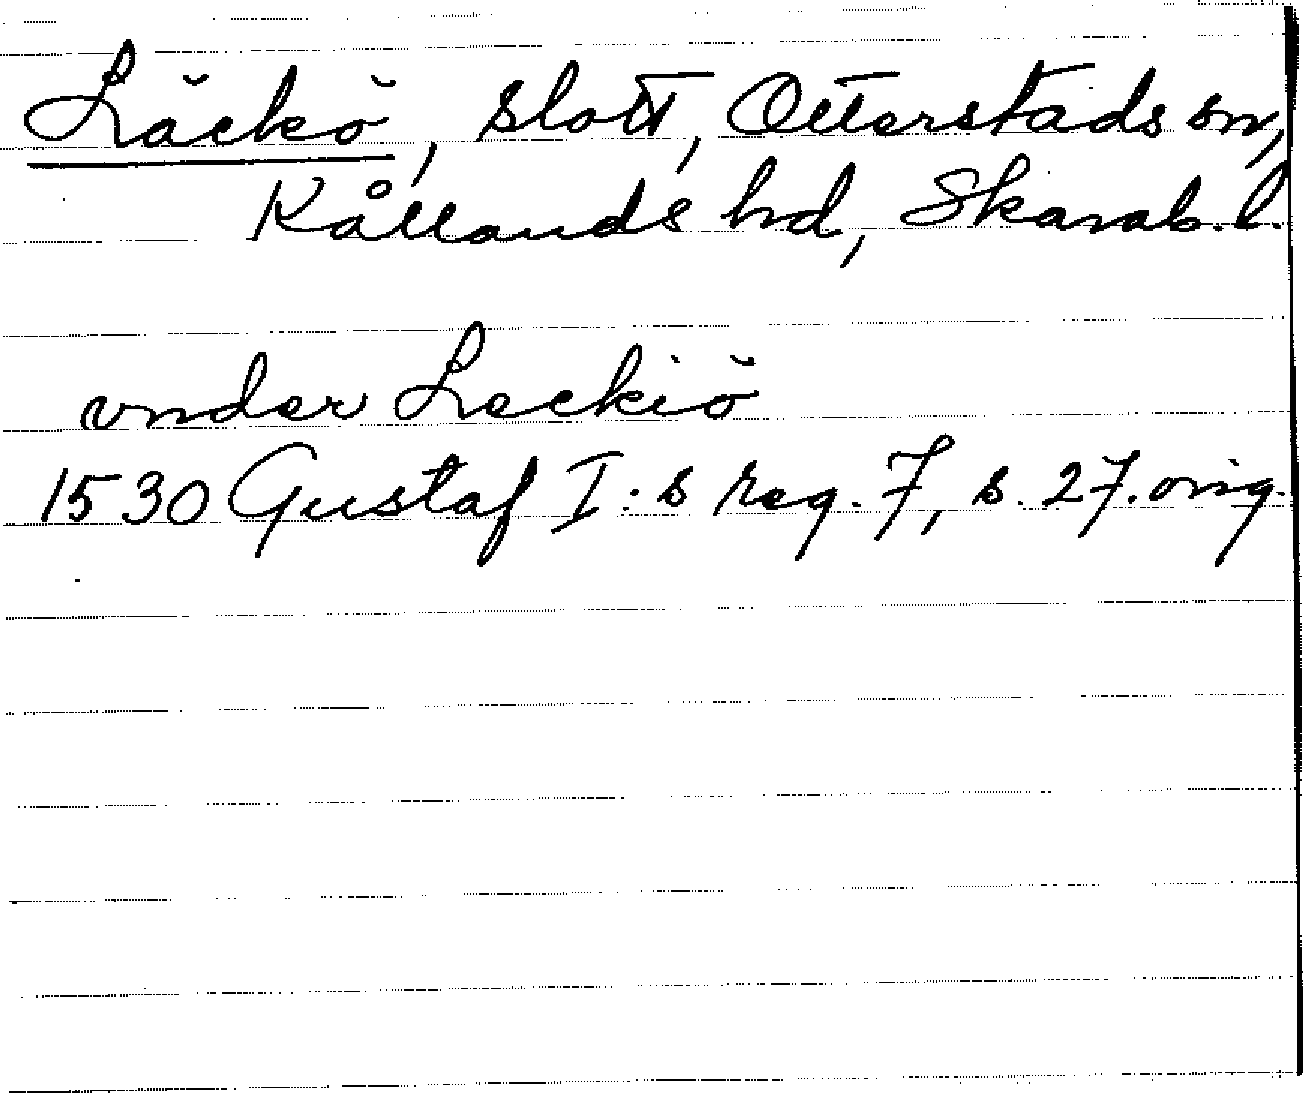 Läckö, slott, Otterstads sn,
Kållands hd, Skarab. l.
vnder Leckiö
1530 Gustaf I:s reg. 7, s. 27. orig.